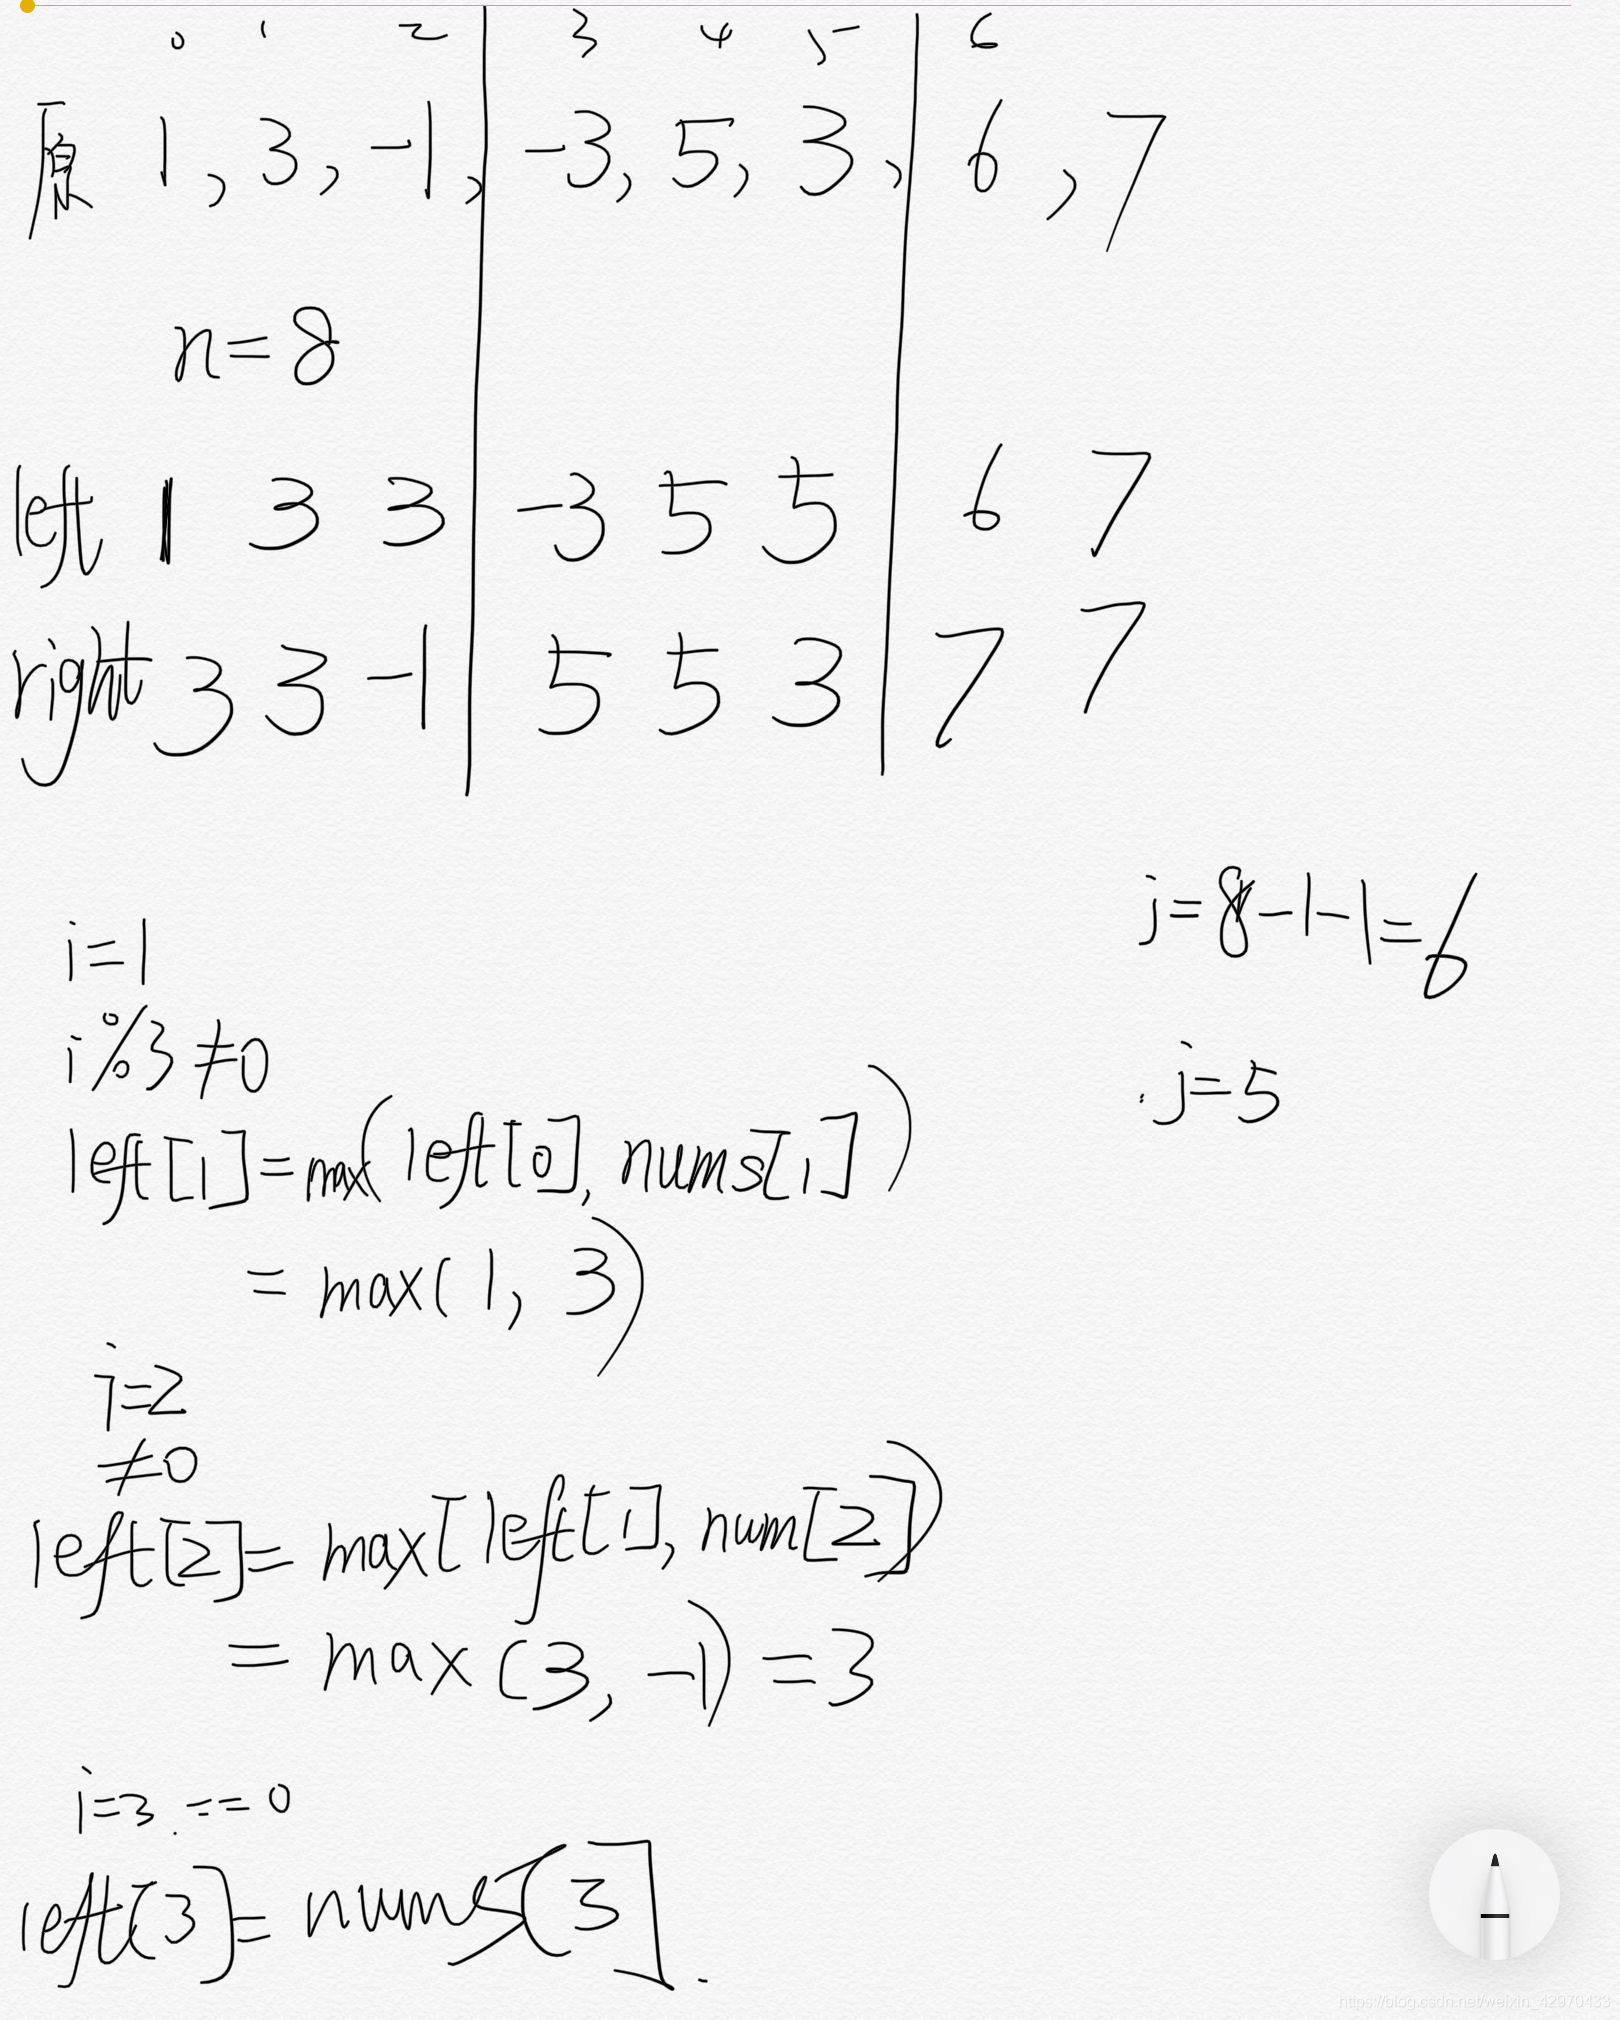 0 1 2 3 4 5 6
原 1, 3, -1, -3, 5, 3, 6, 7
n=8
left 1 3 3 -3 5 5 6 7
right 3 3 -1 5 5 3 7 7
j=8-1-1=6
i=1
i%3≠0
j=5
left[1]=max(left[0], nums[1])
=max(1, 3)
i=2
≠0
left[2]=max[left[1], num[2])
=max(3, -1)=3
i=3 ==0
left[3]=nums[3].
https://blog.csdn.net/weixin_42970433